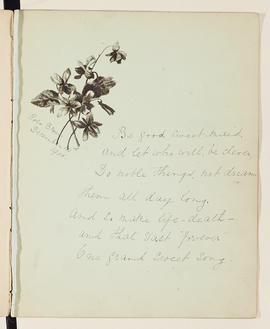 Be good sweet maid,
and let who will, be clever
Do noble things, not dream
them all day long.
And so make life – death –
and that vast "forever"
One grand sweet song.
December